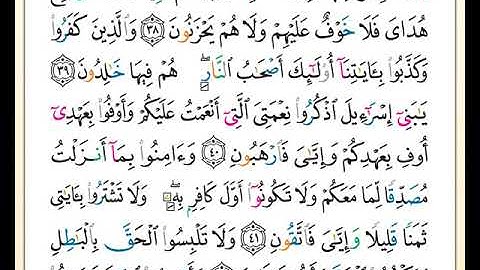 هُدَاىَ فَلَا خَوْفٌ عَلَيْهِمْ وَلَا هُمْ يَحْزَنُونَ ﴿٣٨﴾ وَالَّذِينَ كَفَرُوا۟
وَكَذَّبُوا۟ بِـَٔايَـٰتِنَآ أُو۟لَـٰٓئِكَ أَصْحَـٰبُ النَّارِ ۖ هُمْ فِيهَا خَـٰلِدُونَ ﴿٣٩﴾
يَـٰبَنِىٓ إِسْرَٰٓءِيلَ اذْكُرُوا۟ نِعْمَتِىَ الَّتِىٓ أَنْعَمْتُ عَلَيْكُمْ وَأَوْفُوا۟ بِعَهْدِىٓ
أُوفِ بِعَهْدِكُمْ وَإِيَّـٰىَ فَارْهَبُونِ ﴿٤٠﴾ وَءَامِنُوا۟ بِمَآ أَنزَلْتُ
مُصَدِّقًا لِّمَا مَعَكُمْ وَلَا تَكُونُوٓا۟ أَوَّلَ كَافِرٍۭ بِهِۦ ۖ وَلَا تَشْتَرُوا۟ بِـَٔايَـٰتِى
ثَمَنًا قَلِيلًا وَإِيَّـٰىَ فَاتَّقُونِ ﴿٤١﴾ وَلَا تَلْبِسُوا۟ الْحَقَّ بِالْبَـٰطِلِ